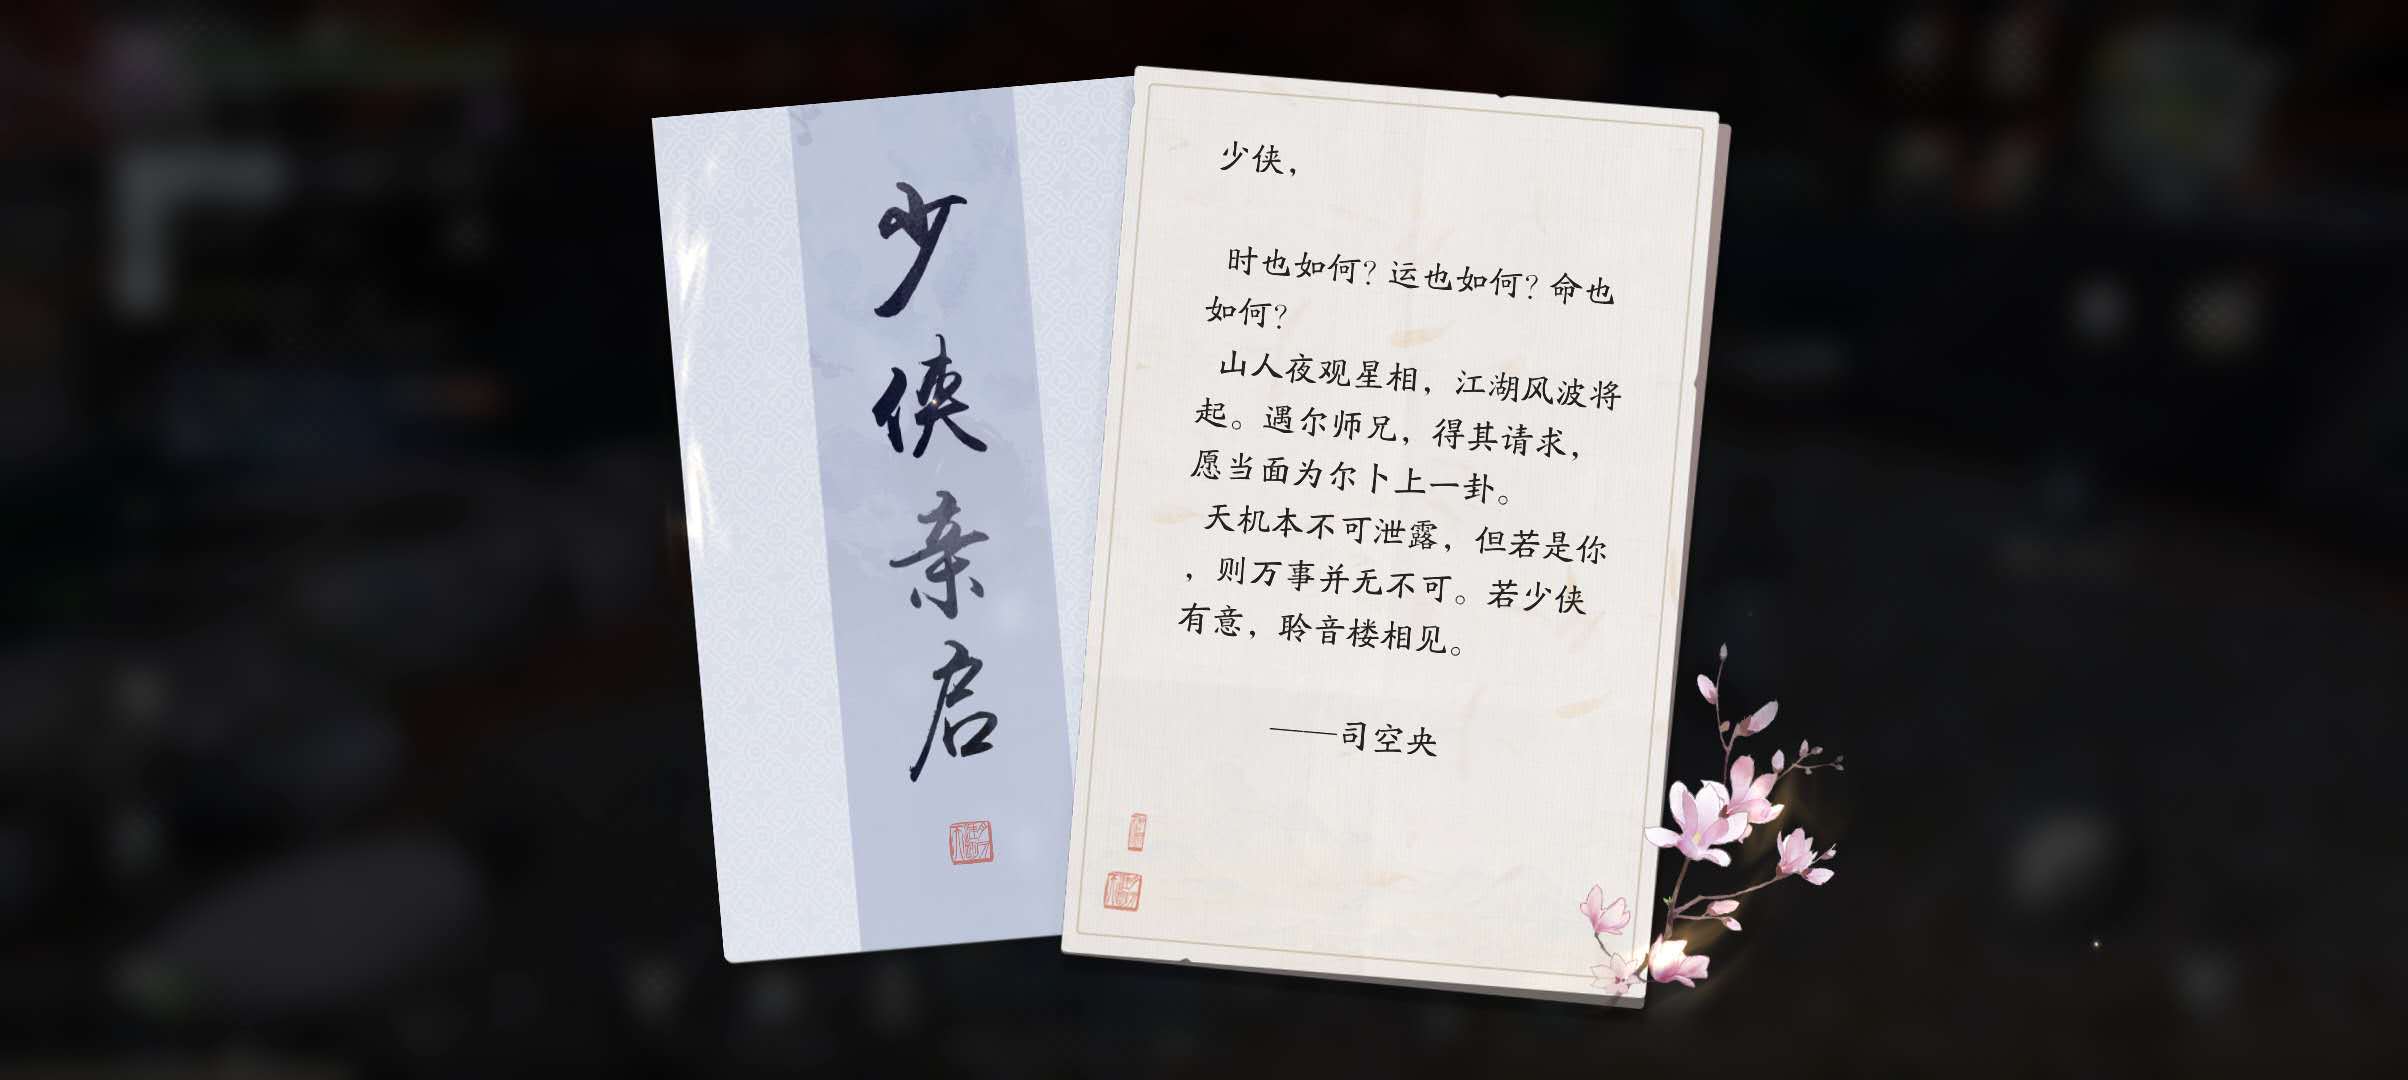 少侠亲启
少侠，
时也如何？运也如何？命也
如何？
山人夜观星相，江湖风波将
起。遇尔师兄，得其请求，
愿当面为尔卜上一卦。
天机本不可泄露，但若是你
，则万事并无不可。若少侠
有意，聆音楼相见。
——司空央